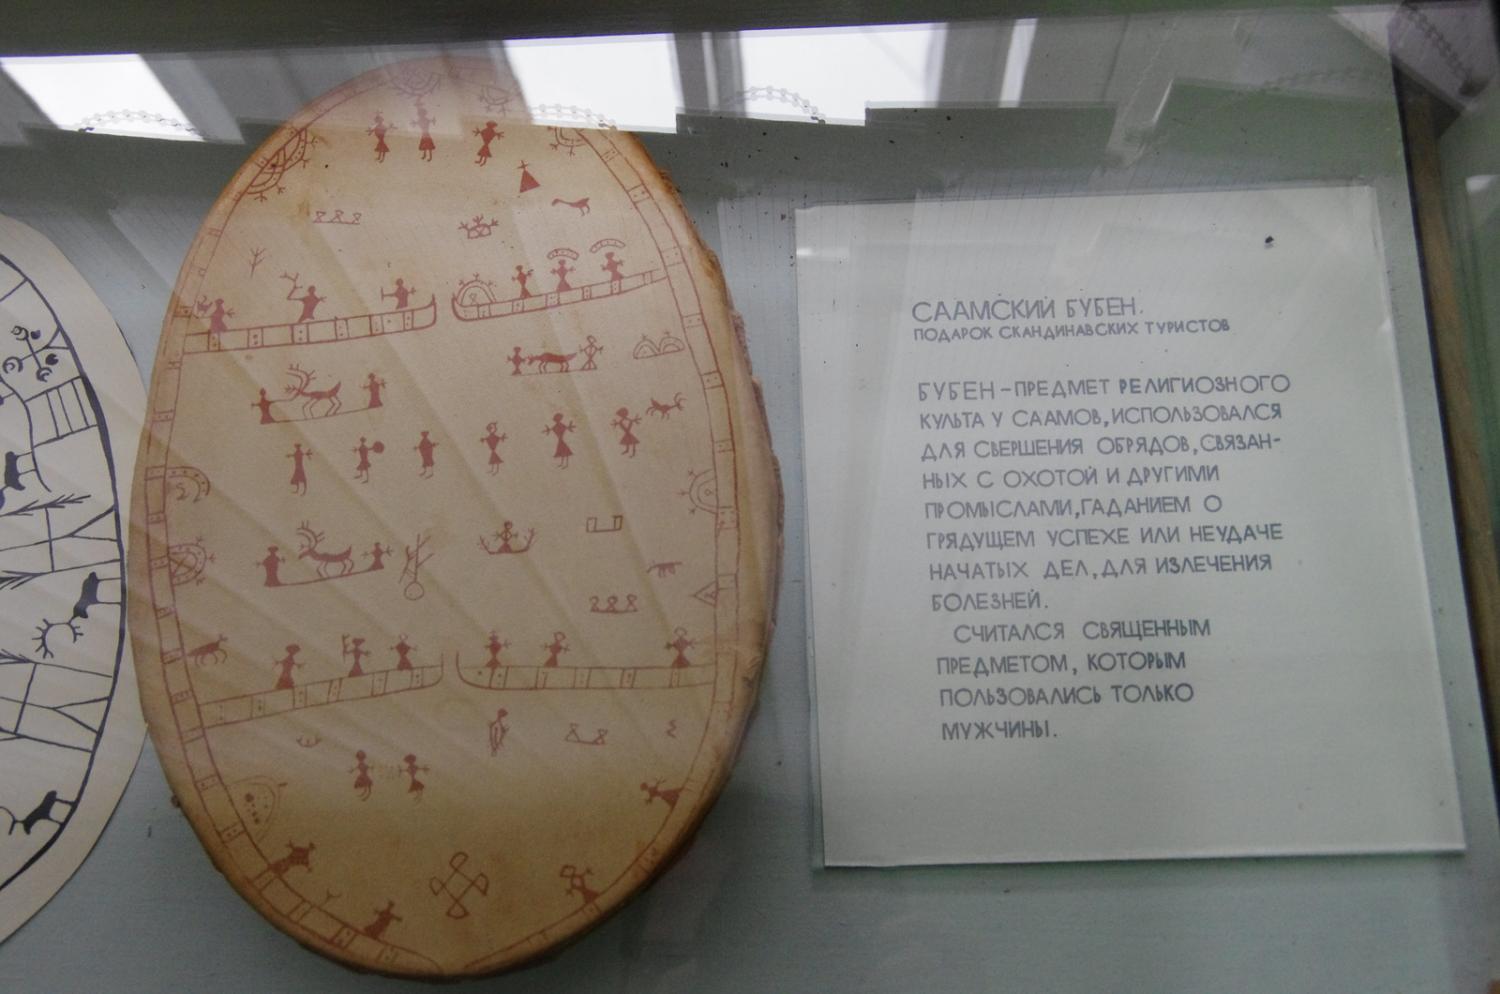 СААМСКИЙ БУБЕН.
ПОДАРОК СКАНДИНАВСКИХ ТУРИСТОВ
БУБЕН-ПРЕДМЕТ РЕЛИГИОЗНОГО
КУЛЬТА У СААМОВ, ИСПОЛЬЗОВАЛСЯ
ДЛЯ СВЕРШЕНИЯ ОБРЯДОВ, СВЯЗАН-
НЫХ С ОХОТОЙ И ДРУГИМИ
ПРОМЫСЛАМИ, ГАДАНИЕМ О
ГРЯДУЩЕМ УСПЕХЕ ИЛИ НЕУДАЧЕ
НАЧАТЫХ ДЕЛ, ДЛЯ ИЗЛЕЧЕНИЯ
БОЛЕЗНЕЙ.
СЧИТАЛСЯ СВЯЩЕННЫМ
ПРЕДМЕТОМ, КОТОРЫМ
ПОЛЬЗОВАЛИСЬ ТОЛЬКО
МУЖЧИНЫ.